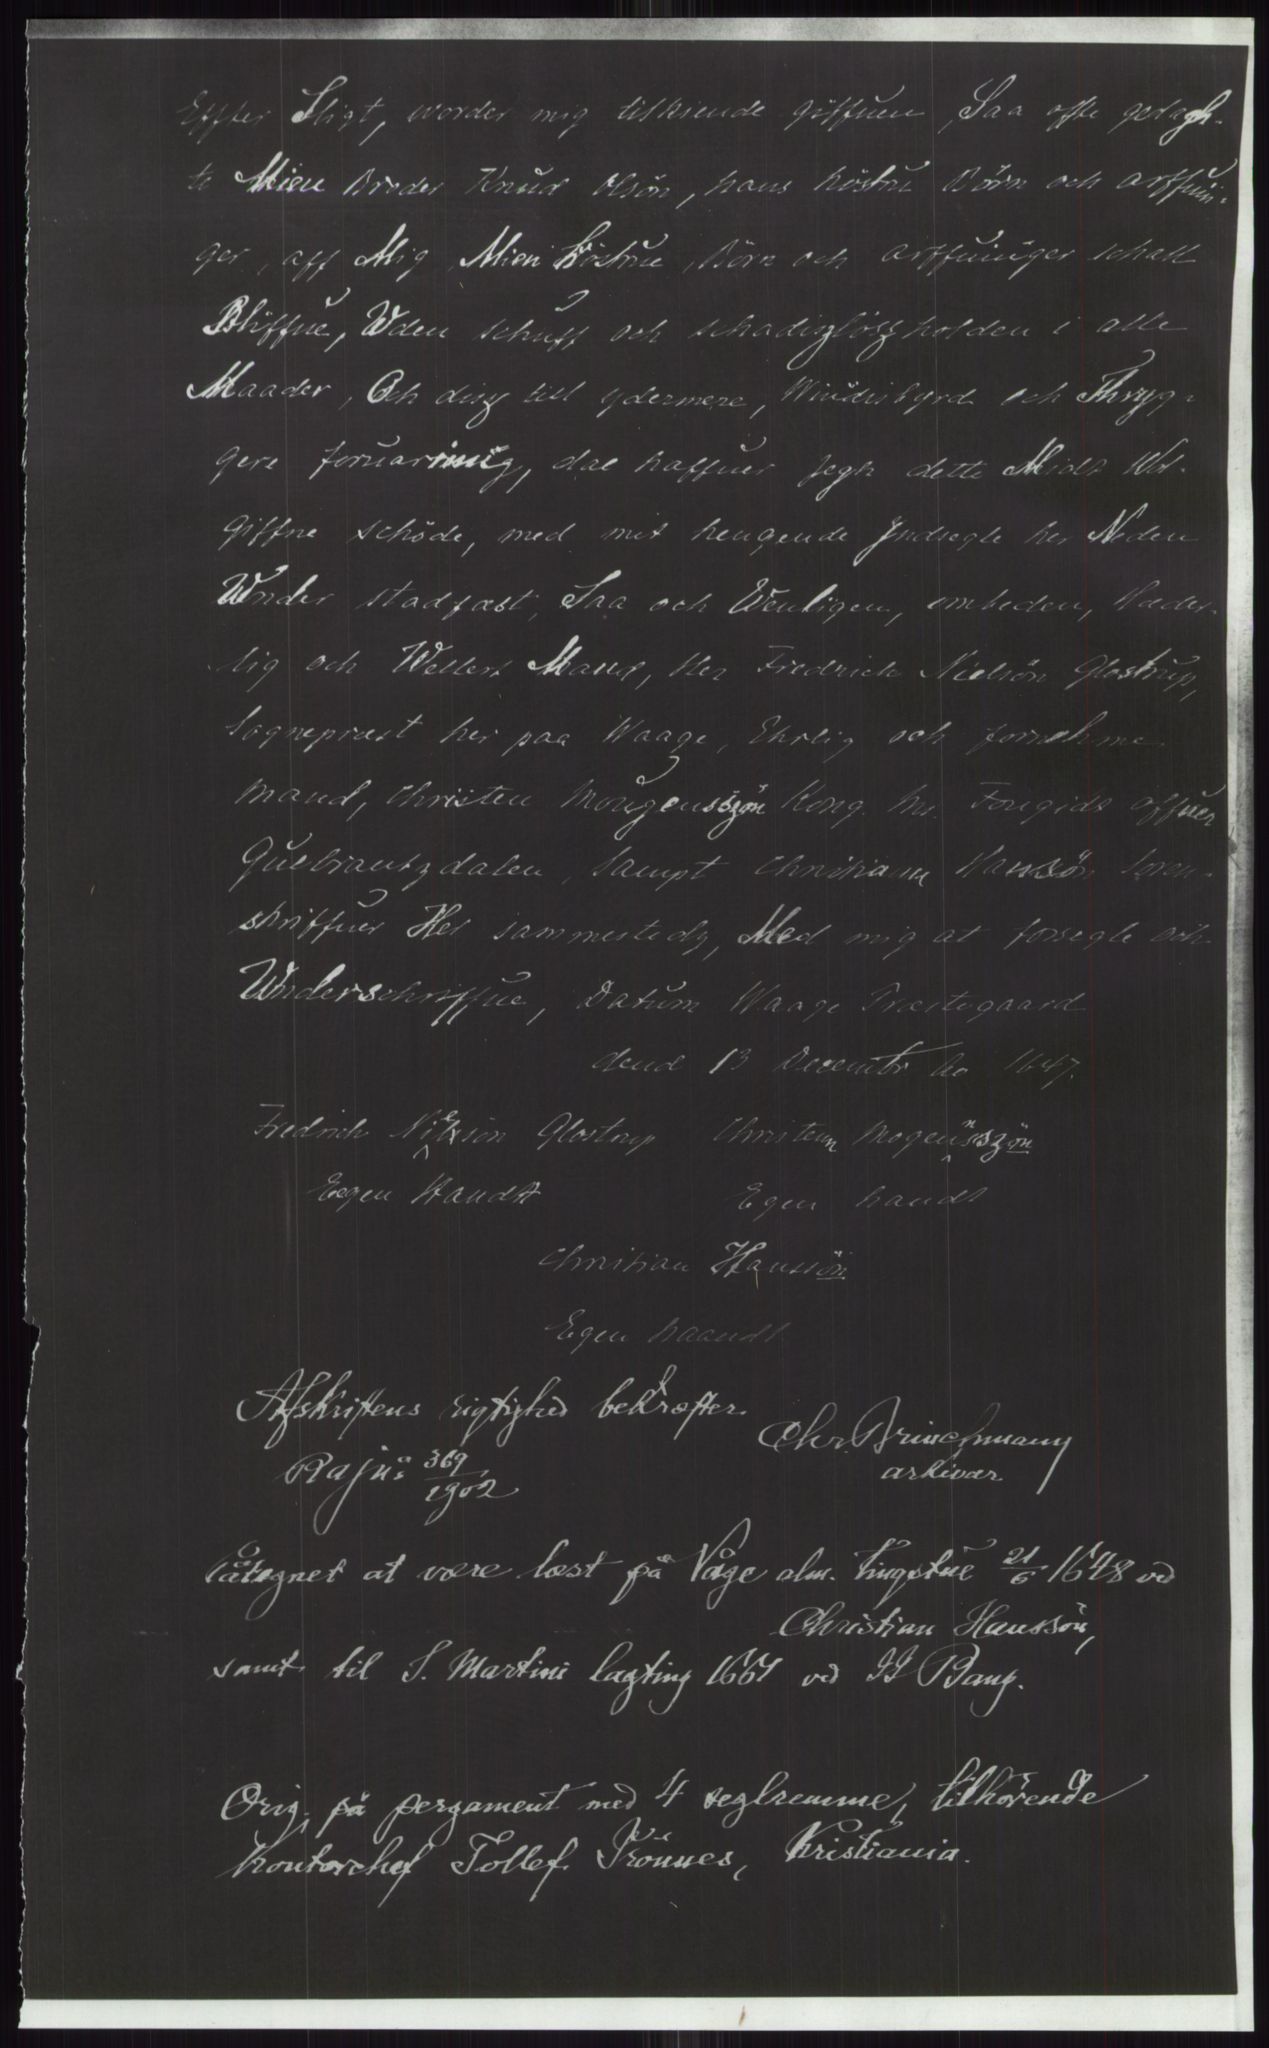 Effter Sligt, worder mig tilkiende giffuen, Saa offte gedagh-
te Mien broder Knud Olsön, hans höstru Börn och arffuin-
ger, aff Mig Mien höstrue, Börn och arffuinger schall
Bliffue, Uden schuff och schadiszlösz holden i alle
Maader, Och disz till ydermere, Windisbyrd och Thryg-
gere foruaring, dae haffuer Jegh dette Midt Wd-
giffne schöde, med mit hengende Jndsegle her Neden
Wnder stadfæst, Saa och Wenligen, ombeden, Hæder-
lig och Wellert Mand, Her Fredrich Nielsön Glostrup,
Sognepræst her paa Waage, Ehrlig och fornehme
Mand, Christen Mougensszön Kong. Ms. Fougids offuer
Gulbrantzdalen, Sampt Christiann Hanssön Soren-
skriffuer Her sammestedz, Med mig at forsegle och
Wnderschriffue, Datum Waage Præstegaard
dend 13 Decembr Ao 1647.
Fredrich Nielsön Glostrup Christenn Mogensszön
Egen Handt Egen handt
Christian Hanssön
Egen haandt
Afskriftens rigtighed bekræfter.
Chr. Brinchmann
arkivar
Rajns 369/1902
Påtegnet at være læst på Våge alm. tingstue 21/6 1648 ved
Christian Hanssön,
samt til S. Martini lagting 1661 ved JJ Bang.
Orig. på pergament med 4 seglremme, tilhörende
kontorchef Tollef Prönnes, Kristiania.